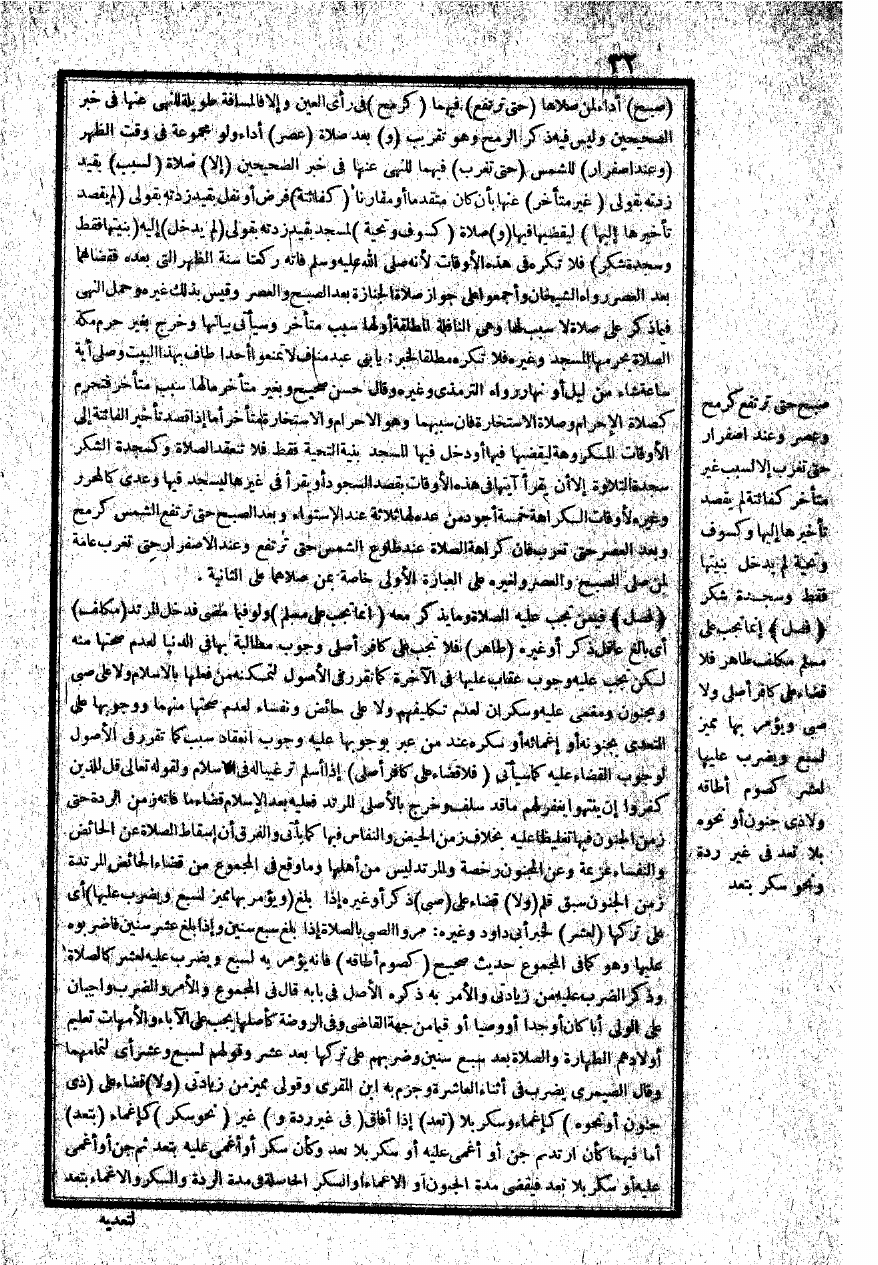 ٣٢
(صبح) أداء لمن صلاها (حتى ترتفع) فيهما (كرمح) فى رأى العين وإلا فالمسافة طويلة للنهى عنها فى خبر
الصحيحين وليس فيه ذكر الرمح وهو تقريب (و) بعد صلاة (عصر) أداء ولو مجموعة فى وقت الظهر
(وعند اصفرار) للشمس (حتى تغرب) فيهما للنهى عنها فى خبر الصحيحين (إلا) صلاة (لسبب) بقيد
زدته بقولى (غير متأخر) عنها بأن كان متقدما أو مقارنا (كفائتة) فرض أو نفل بقيد زدته بقولى (لم يقصد
تأخيرها إليها) ليقضيها فيها (و) صلاة (كسوف وتحية) لمسجد بقيد زدته بقولى (لم يدخل) إليه (بنيتها فقط
وسجدة شكر) فلا تكره فى هذه الأوقات لأنه صلى الله عليه وسلم فاته ركعتا سنة الظهر التى بعده فقضاهما
بعد العصر رواه الشيخان وأجمعوا على جواز صلاة الجنازة بعد الصبح والعصر وقيس بذلك غيره وحمل النهى
فيما ذكر على صلاة لا سبب لها وهى النافلة المطلقة أو لها سبب متأخر وسيأتى بيانها وخرج بغير حرم مكة
الصلاة بحرمها المسجد وغيره فلا تكره مطلقا لخبر: يا بنى عبد مناف لا تمنعوا أحدا طاف بهذا البيت وصلى أية
ساعة شاء من ليل أو نهار رواه الترمذى وغيره وقال حسن صحيح وبغير متأخر ما لها سبب متأخر فتحرم
كصلاة الإحرام وصلاة الاستخارة فان سببهما وهو الاحرام والاستخارة متأخر أما إذا قصد تأخير الفائتة إلى
الأوقات المكروهة ليقضيها فيها أو دخل فيها المسجد بنية التحية فقط فلا تنعقد الصلاة وكسجدة الشكر
سجدة التلاوة إلا أن يقرأ آيتها فى هذه الأوقات بقصد السجود أو يقرأ فى غيرها ليسجد فيها وعدى كالمحرر
وغيره لأوقات الكراهة خمسة أجود من عده لها ثلاثة عند الإستواء وبعد الصبح حتى ترتفع الشمس كرمح
وبعد العصر حتى تغرب فان كراهة الصلاة عند طلوع الشمس حتى ترتفع وعند الاصفرار حتى تغرب عامة
لمن صلى الصبح والعصر ولغيره على العبارة الأولى خاصة بمن صلاهما على الثانية .
﴿فصل﴾ فيمن تجب عليه الصلاة وما يذكر معه (إنما تجب على مسلم) ولو فيما مضى فدخل المرتد (مكلف)
أى بالغ عاقل ذكر أو غيره (طاهر) فلا تجب على كافر أصلى وجوب مطالبة بها فى الدنيا لعدم صحتها منه
لكن تجب عليه وجوب عقاب عليها فى الآخرة كما تقرر فى الأصول لتمكنه من فعلها بالاسلام ولا على صبى
ومجنون ومغمى عليه وسكران لعدم تكليفهم ولا على حائض ونفساء لعدم صحتها منهما ووجوبها على
المتعدى بجنونه أو إغمائه أو سكره عند من عبر بوجوبها عليه وجوب انعقاد سبب كما تقرر فى الأصول
لوجوب القضاء عليه كما سيأتى (فلا قضاء على كافر أصلى) إذا أسلم ترغيبا له فى الاسلام ولقوله تعالى قل للذين
كفروا إن ينتهوا يغفر لهم ما قد سلف وخرج بالأصلى المرتد فعليه بعد الإسلام قضاء ما فاته زمن الردة حتى
زمن الجنون فيها تغليظا عليه بخلاف زمن الحيض والنفاس فيها كما يأتى والفرق أن إسقاط الصلاة عن الحائض
والنفساء عزيمة وعن المجنون رخصة والمرتد ليس من أهلها وما وقع فى المجموع من قضاء الحائض المرتدة
زمن الجنون سبق قلم (ولا) قضاء على (صبى) ذكر أو غيره إذا بلغ (ويؤمر بها مميز لسبع ويضرب عليها) أى
على تركها (لعشر) لخبر أبى داود وغيره: مروا الصبى بالصلاة إذا بلغ سبع سنين وإذا بلغ عشر سنين فاضربوه
عليها وهو كما فى المجموع حديث صحيح (كصوم أطاقه) فانه يؤمر به لسبع ويضرب عليه لعشر كالصلاة
وذكر الضرب عليه من زيادتى والأمر به ذكره الأصل فى بابه قال فى المجموع والأمر والضرب واجبان
على الولى أبا كان أو جدا أو وصيا أو قيما من جهة القاضى وفى الروضة كأصلها يجب على الآباء والأمهات تعليم
أولادهم الطهارة والصلاة بعد سبع سنين وضربهم على تركها بعد عشر وقولهم لسبع وعشر أى لتمامهما
وقال الصيمرى يضرب فى أثناء العاشرة وجزم به ابن المقرى وقولى مميز من زيادتى (ولا) قضاء على (ذى
جنون أو نحوه) كإغماء وسكر بلا (تعد) إذا أفاق (فى غير ردة و) غير (نحو سكر) كإغماء (بتعد)
أما فيهما كأن ارتد ثم جن أو أغمى عليه أو سكر بلا تعد وكأن سكر أو أغمى عليه بتعد ثم جن أو أغمى
عليه أو سكر بلا تعد فيقضى مدة الجنون أو الاغماء أو السكر الحاصلة فى مدة الردة والسكر والاغماء بتعد
لتعديه
صبح حتى ترتفع كرمح
وعصر وعند اصفرار
حتى تغرب إلا لسبب غير
متأخر كفائتة لم يقصد
تأخيرها إليها وكسوف
وتحية لم يدخل بنيتها
فقط وسجدة شكر
﴿فصل﴾ إنما تجب على
مسلم مكلف طاهر فلا
قضاء على كافر أصلى ولا
صبى ويؤمر بها مميز
لسبع ويضرب عليها
لعشر كصوم أطاقه
ولا ذى جنون أو نحوه
بلا تعد فى غير ردة
ونحو سكر بتعد